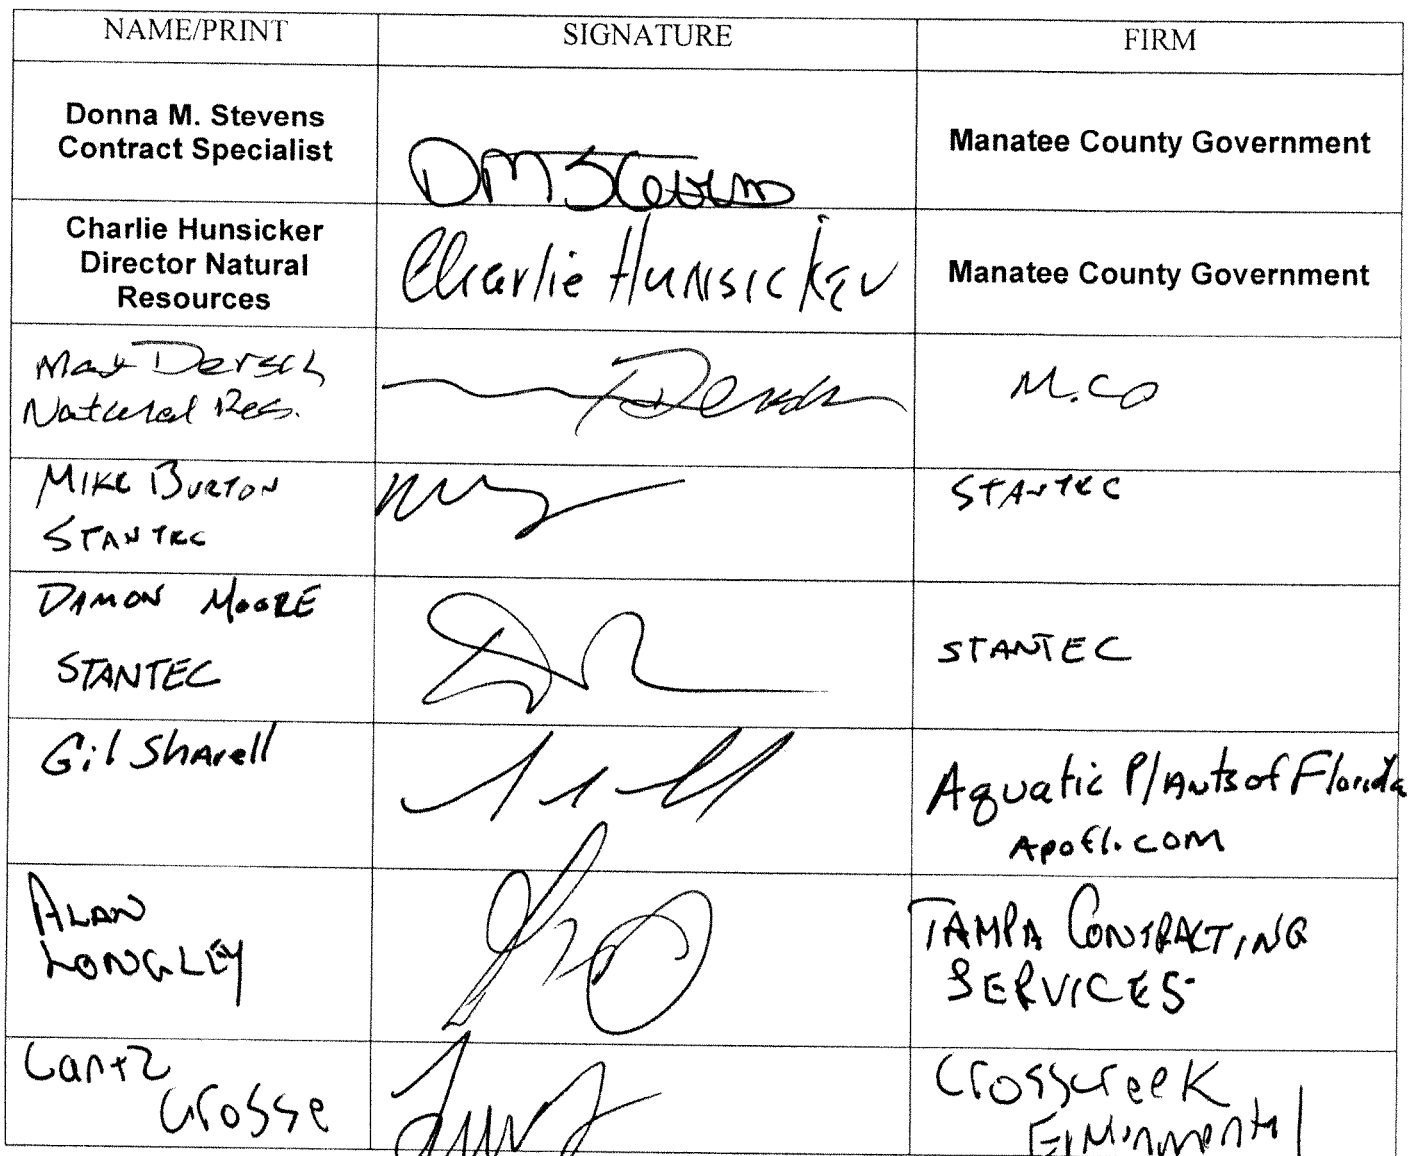 NAME/PRINT SIGNATURE FIRM
Donna M. Stevens
Contract Specialist
DM Stevens
Manatee County Government
Charlie Hunsicker
Director Natural
Resources
Charlie Hunsicker
Manatee County Government
Max Dersch
Natural Res.
Dersch
M.Co
MIKE BURTON
STANTEC
STANTEC
DAMON MOORE
STANTEC
STANTEC
Gil Sharell
Aquatic Plants of Florida
Apofl.com
ALAN
LONGLEY
TAMPA CONTRACTING
SERVICES
Grosse
Crosscreek
Environmental